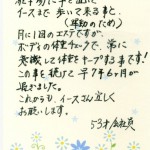 イースまで 歩いて来る事と、
(運動のため)
月に1回のエステですが、
ボディの体重チェックで、常に
意識して体重をキープする事です!
この事を続けて 早7年6ヶ月が
過ぎました。
これからも、イースさん宜しく
お願いします。
53才 会社員